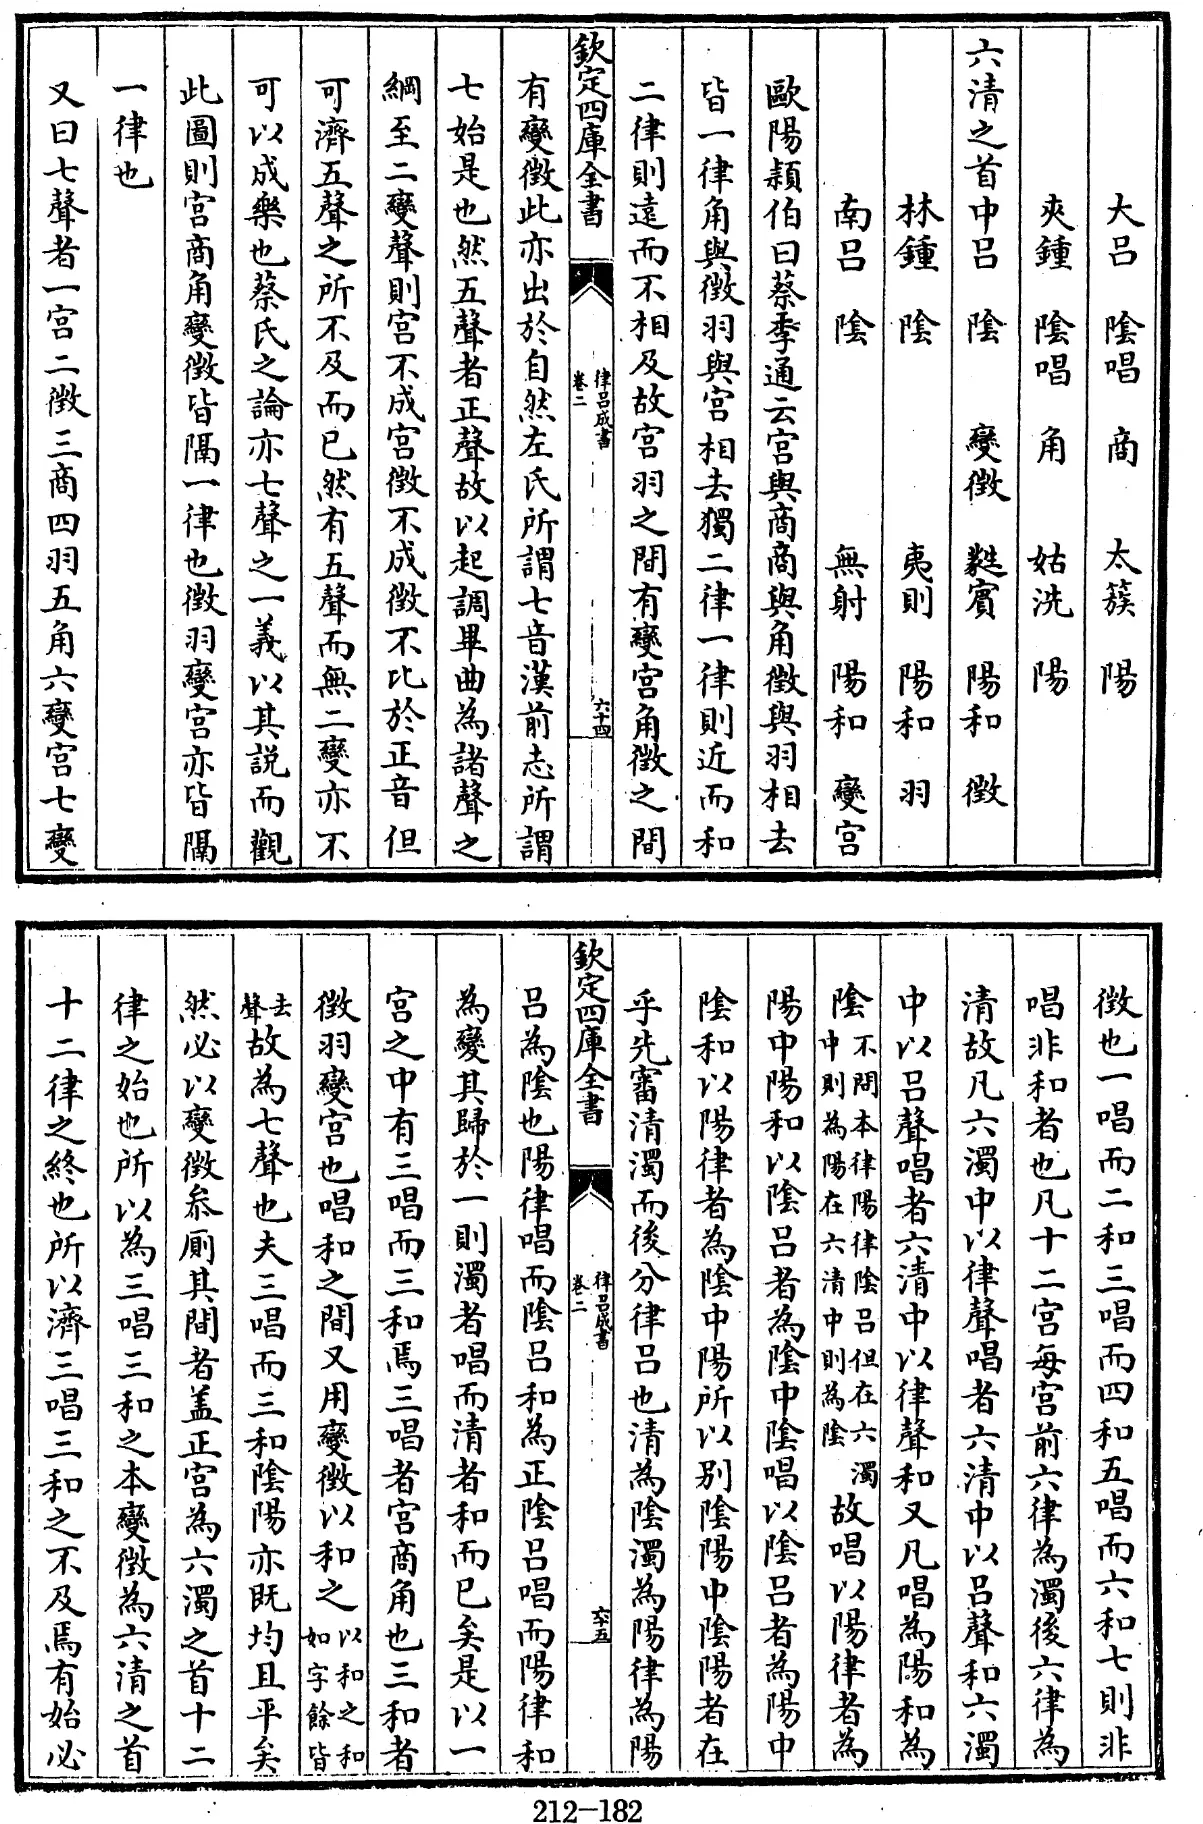 大呂　陰唱　商　太蔟　陽
夾鍾　陰唱　角　姑洗　陽
六清之首中呂　陰　變徵　蕤賓　陽和　徵
林鍾　陰　夷則　陽和　羽
南呂　陰　無射　陽和　變宮
歐陽潁伯曰蔡季通云宮與商商與角徵與羽相去
皆一律角與徵羽與宮相去獨二律一律則近而和
二律則遠而不相及故宮羽之間有變宮角徵之間
欽定四庫全書　律呂成書　卷二　六十四
有變徵此亦出於自然左氏所謂七音漢前志所謂
七始是也然五聲者正聲故以起調畢曲為諸聲之
綱至二變聲則宮不成宮徵不成徵不比於正音但
可濟五聲之所不及而已然有五聲而無二變亦不
可以成樂也蔡氏之論亦七聲之一義以其説而觀
此圖則宮商角變徵皆隔一律也徵羽變宮亦皆隔
一律也
又曰七聲者一宮二徵三商四羽五角六變宮七變
徵也一唱而二和三唱而四和五唱而六和七則非
唱非和者也凡十二宮每宮前六律為濁後六律為
清故凡六濁中以律聲唱者六清中以呂聲和六濁
中以呂聲唱者六清中以律聲和又凡唱為陽和為
陰不問本律陽律陰呂但在六濁中則為陽在六清中則為陰故唱以陽律者為
陽中陽和以陰呂者為陰中陰唱以陰呂者為陽中
陰和以陽律者為陰中陽所以别陰陽中陰陽者在
乎先審清濁而後分律呂也清為陰濁為陽律為陽
欽定四庫全書　律呂成書　卷二　六十五
呂為陰也陽律唱而陰呂和為正陰呂唱而陽律和
為變其歸於一則濁者唱而清者和而已矣是以一
宮之中有三唱而三和焉三唱者宮商角也三和者
徵羽變宮也唱和之間又用變徵以和之以和之和如字餘皆
去聲故為七聲也夫三唱而三和陰陽亦既均且平矣
然必以變徵叅厠其間者盖正宮為六濁之首十二
律之始也所以為三唱三和之本變徵為六清之首
十二律之終也所以濟三唱三和之不及焉有始必
212-182